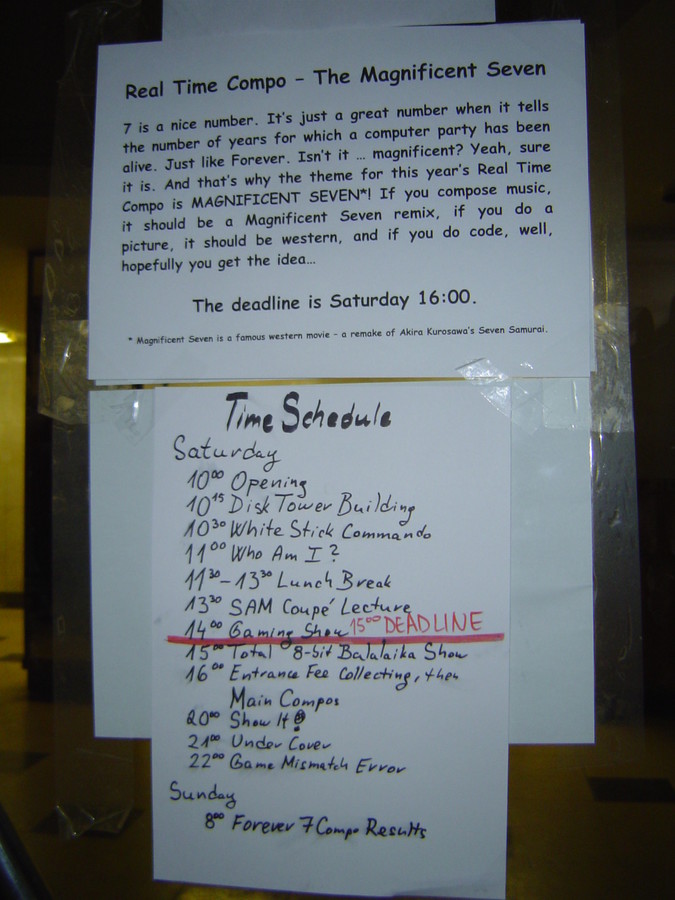 Real Time Compo – The Magnificent Seven
7 is a nice number. It's just a great number when it tells
the number of years for which a computer party has been
alive. Just like Forever. Isn't it … magnificent? Yeah, sure
it is. And that's why the theme for this year's Real Time
Compo is MAGNIFICENT SEVEN*! If you compose music,
it should be a Magnificent Seven remix, if you do a
picture, it should be western, and if you do code, well,
hopefully you get the idea…
The deadline is Saturday 16:00.
* Magnificent Seven is a famous western movie – a remake of Akira Kurosawa's Seven Samurai.
Time Schedule
Saturday
10⁰⁰ Opening
10¹⁵ Disk Tower Building
10³⁰ White Stick Commando
11⁰⁰ Who Am I?
11³⁰–13³⁰ Lunch Break
13³⁰ SAM Coupé Lecture
14⁰⁰ Gaming Show 15⁰⁰ DEADLINE
15⁰⁰ Total 8-bit Balalaika Show
16⁰⁰ Entrance Fee Collecting, then
Main Compos
20⁰⁰ Show It!
21⁰⁰ Under Cover
22⁰⁰ Game Mismatch Error
Sunday
8⁰⁰ Forever 7 Compo Results